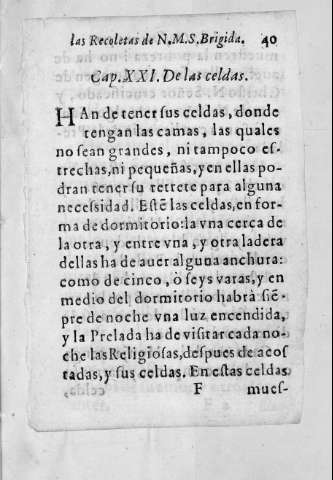 las Recoletas de N.M.S.Brigida. 40
Cap.XXI. De las celdas.
HAn de tener sus celdas, donde
tengan las camas, las quales
no sean grandes, ni tampoco es-
trechas,ni pequeñas,y en ellas po-
dran tener su retrete para alguna
necessidad. Estẽ las celdas,en for-
ma de dormitorio:la vna cerca de
la otra, y entre vna, y otra ladera
dellas ha de auer alguna anchura:
como de cinco, ò seys varas,y en
medio del dormitorio habrà siẽ-
pre de noche vna luz encendida,
y la Prelada ha de visitar cada no-
che las Religiosas,despues de acos
tadas,y sus celdas. En estas celdas
F mues-